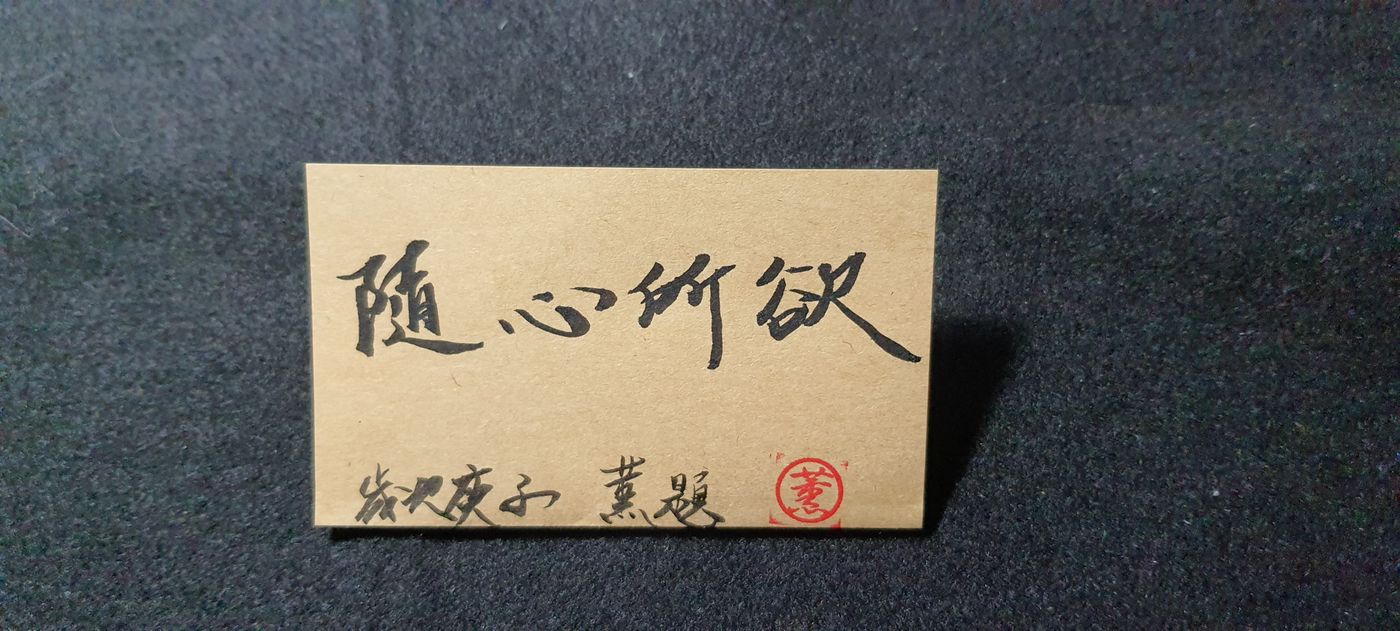 随心所欲
歲次庚子 薰題
薰